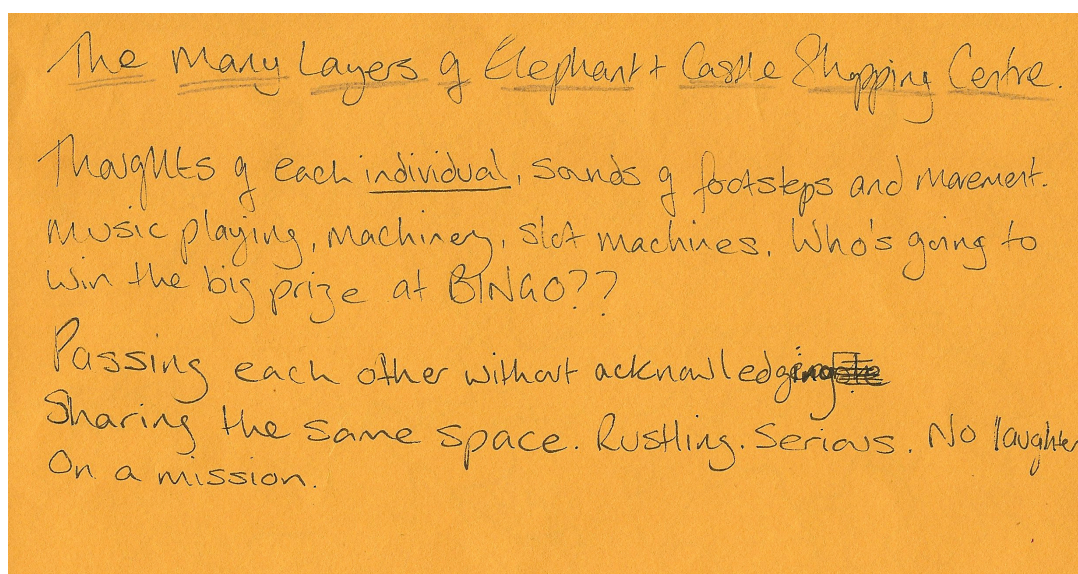 The Many Layers of Elephant + Castle Shopping Centre.
Thoughts of each individual, sounds of footsteps and movement.
Music playing, machinery, slot machines. Who's going to
win the big prize at BINGO??
Passing each other without acknowledging
Sharing the same space. Rustling. Serious. No laughter
On a mission.